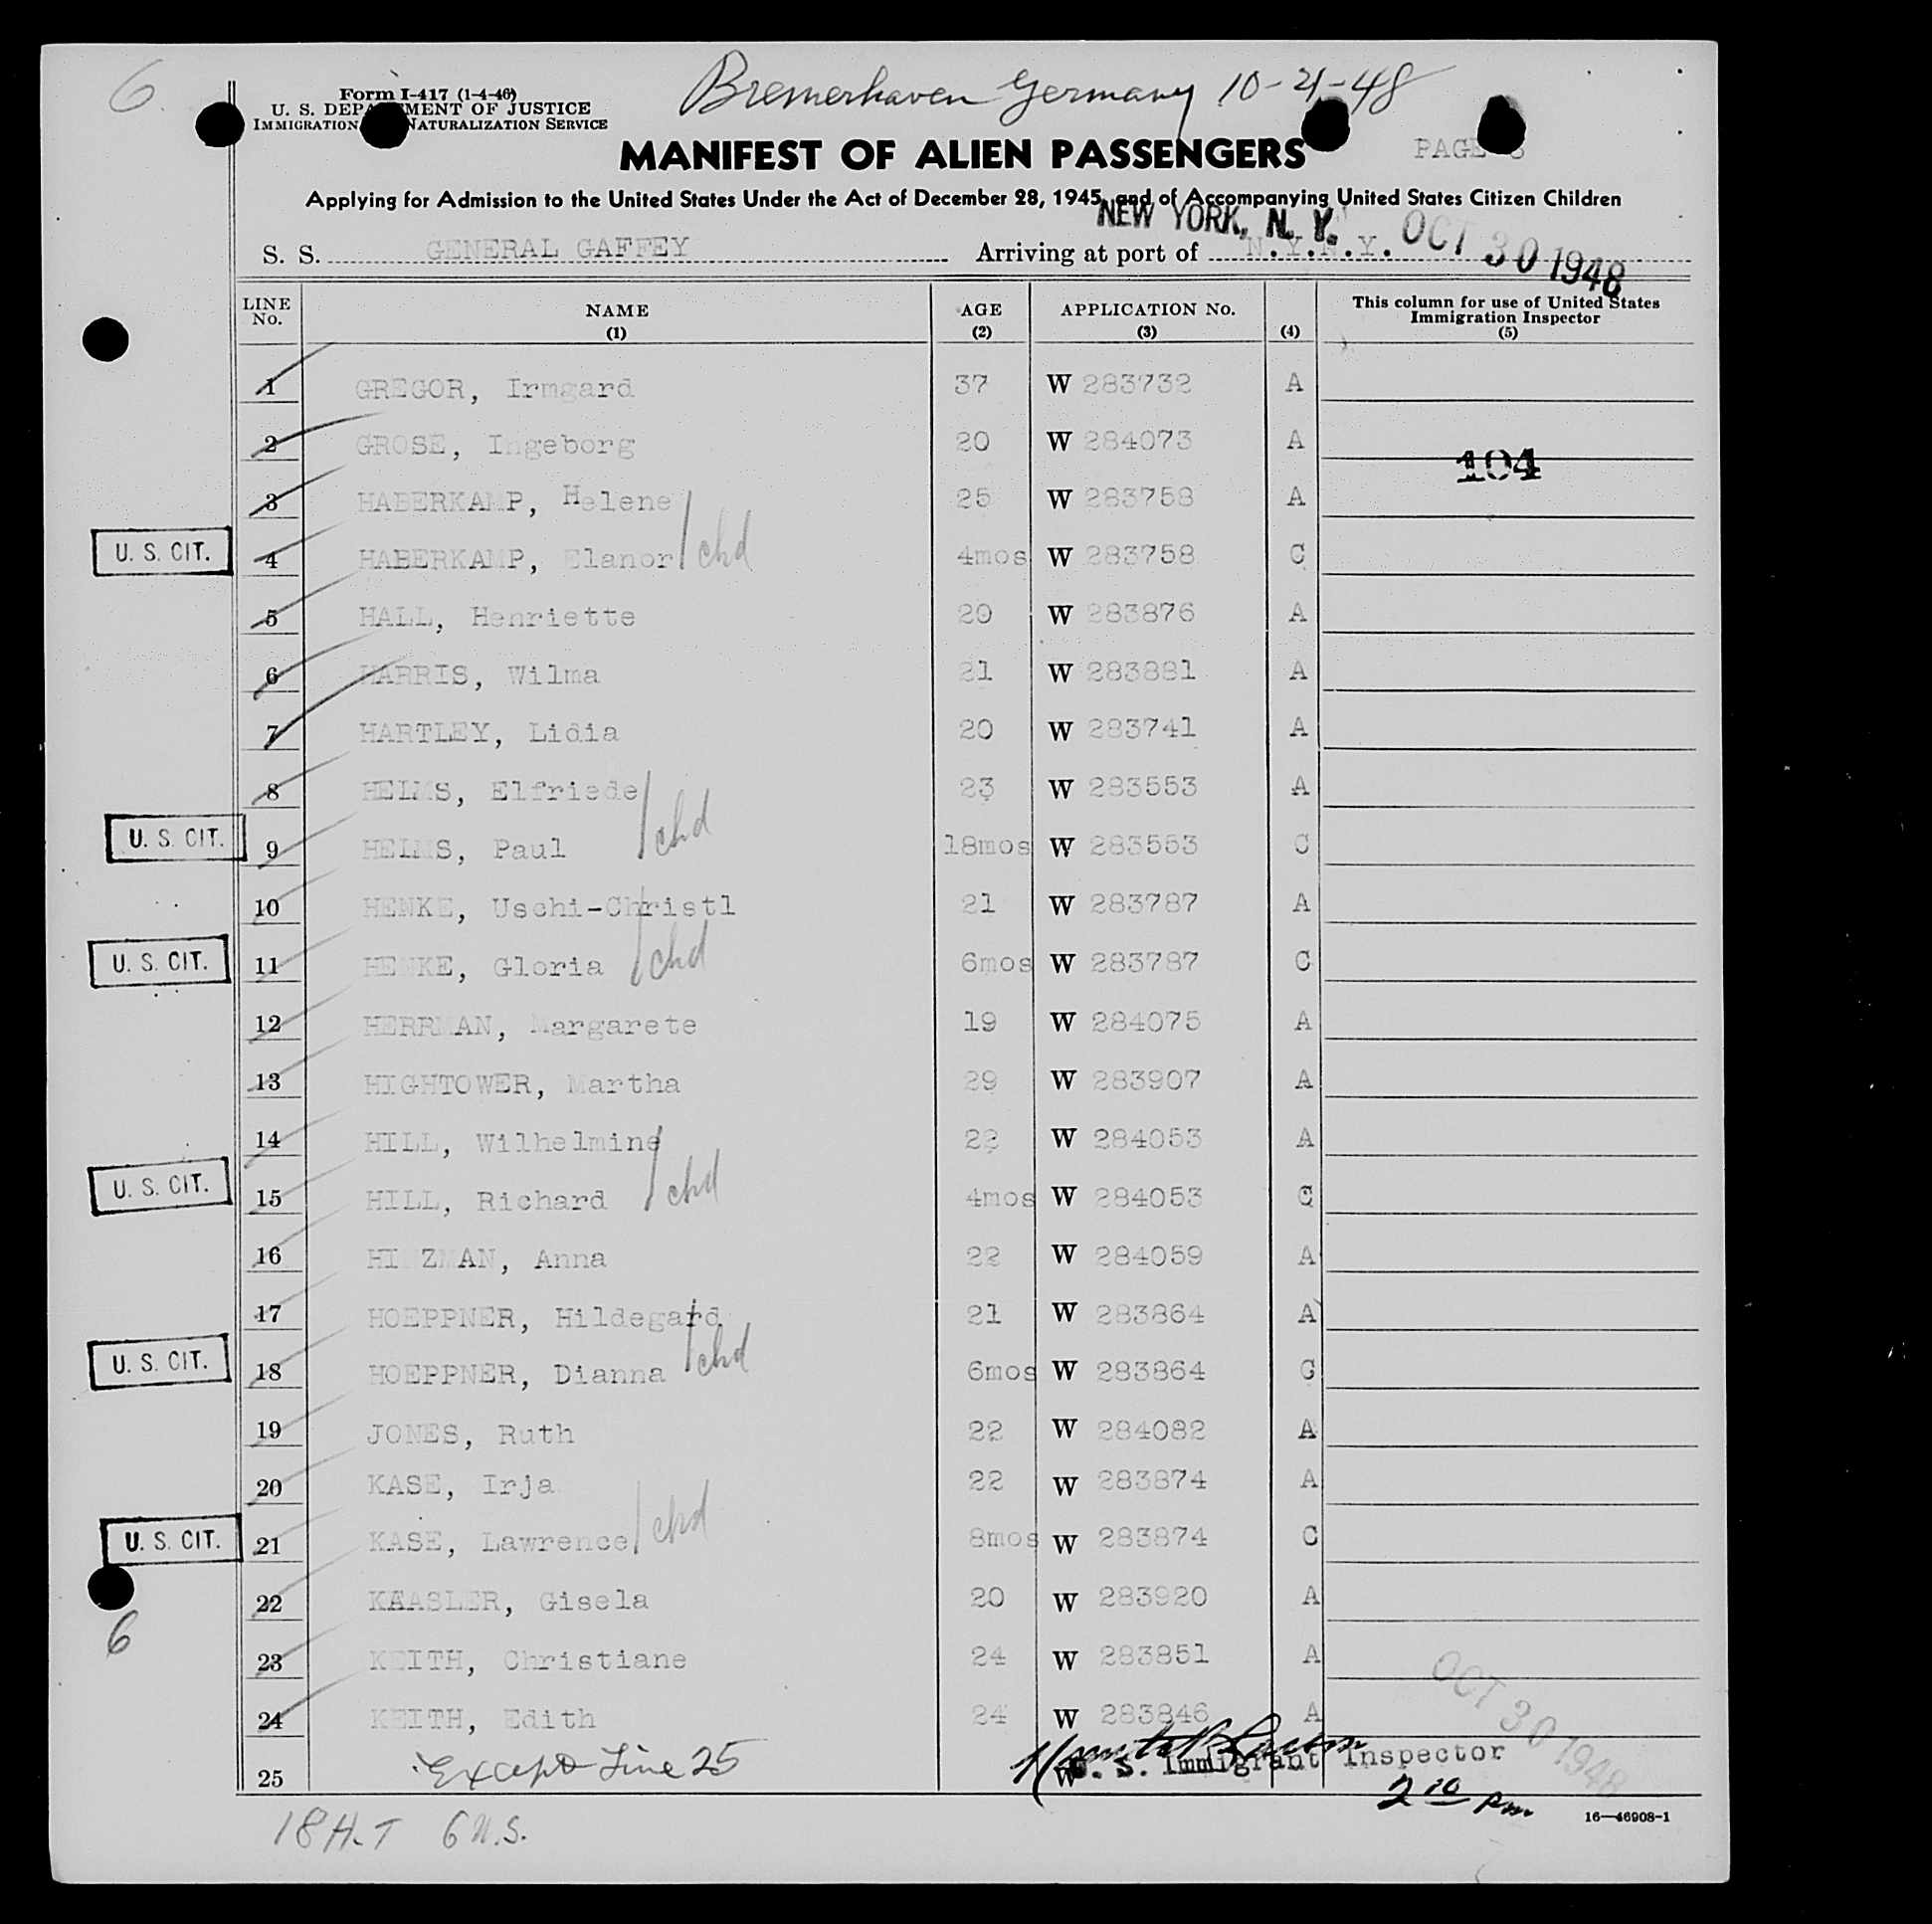 6
Form I-417 (1-4-46)
U. S. DEPARTMENT OF JUSTICE
IMMIGRATION NATURALIZATION SERVICE
Bremerhaven Germany 10-21-48
MANIFEST OF ALIEN PASSENGERS
PAGE
Applying for Admission to the United States Under the Act of December 28, 1945, and of Accompanying United States Citizen Children
NEW YORK, N. Y. OCT 30 1948
S. S. GENERAL GAFFEY Arriving at port of N.Y.N.Y.
LINE No. NAME (1) AGE (2) APPLICATION No. (3) (4) This column for use of United States Immigration Inspector (5)
1 GREGOR, Irmgard 37 W 283732 A
2 GROSE, Ingeborg 20 W 284073 A
104
3 HABERKAMP, Helene 25 W 283758 A
U. S. CIT. 4 HABERKAMP, Elanor chd 4mos W 283758 C
5 HALL, Henriette 20 W 283876 A
6 HARRIS, Wilma 21 W 283881 A
7 HARTLEY, Lidia 20 W 283741 A
8 HELMS, Elfriede 23 W 283553 A
U. S. CIT. 9 HELMS, Paul chd 18mos W 283553 C
10 HENKE, Uschi-Christl 21 W 283787 A
U. S. CIT. 11 HENKE, Gloria chd 6mos W 283787 C
12 HERRMAN, Margarete 19 W 284075 A
13 HIGHTOWER, Martha 29 W 283907 A
14 HILL, Wilhelmine W 284053 A
U. S. CIT. 15 HILL, Richard chd 4mos W 284053 C
16 Anna 22 W 284059 A
17 HOEPPNER, Hildegard 21 W 283864 A
U. S. CIT. 18 HOEPPNER, Dianna chd 6mos W 283864 C
19 JONES, Ruth 22 W 284082 A
20 KASE, Irja 22 W 283874 A
U. S. CIT. 21 KASE, Lawrence chd 8mos W 283874 C
22 Gisela 20 W 283920 A
6
23 KEITH, Christiane 24 W 283851 A
24 KEITH, Edith 24 W 283846 A
OCT 30 1948
25 Except Line 25 W U. S. Immigrant Inspector
2 10 pm
18 H.T 6 U.S.
16—46908-1